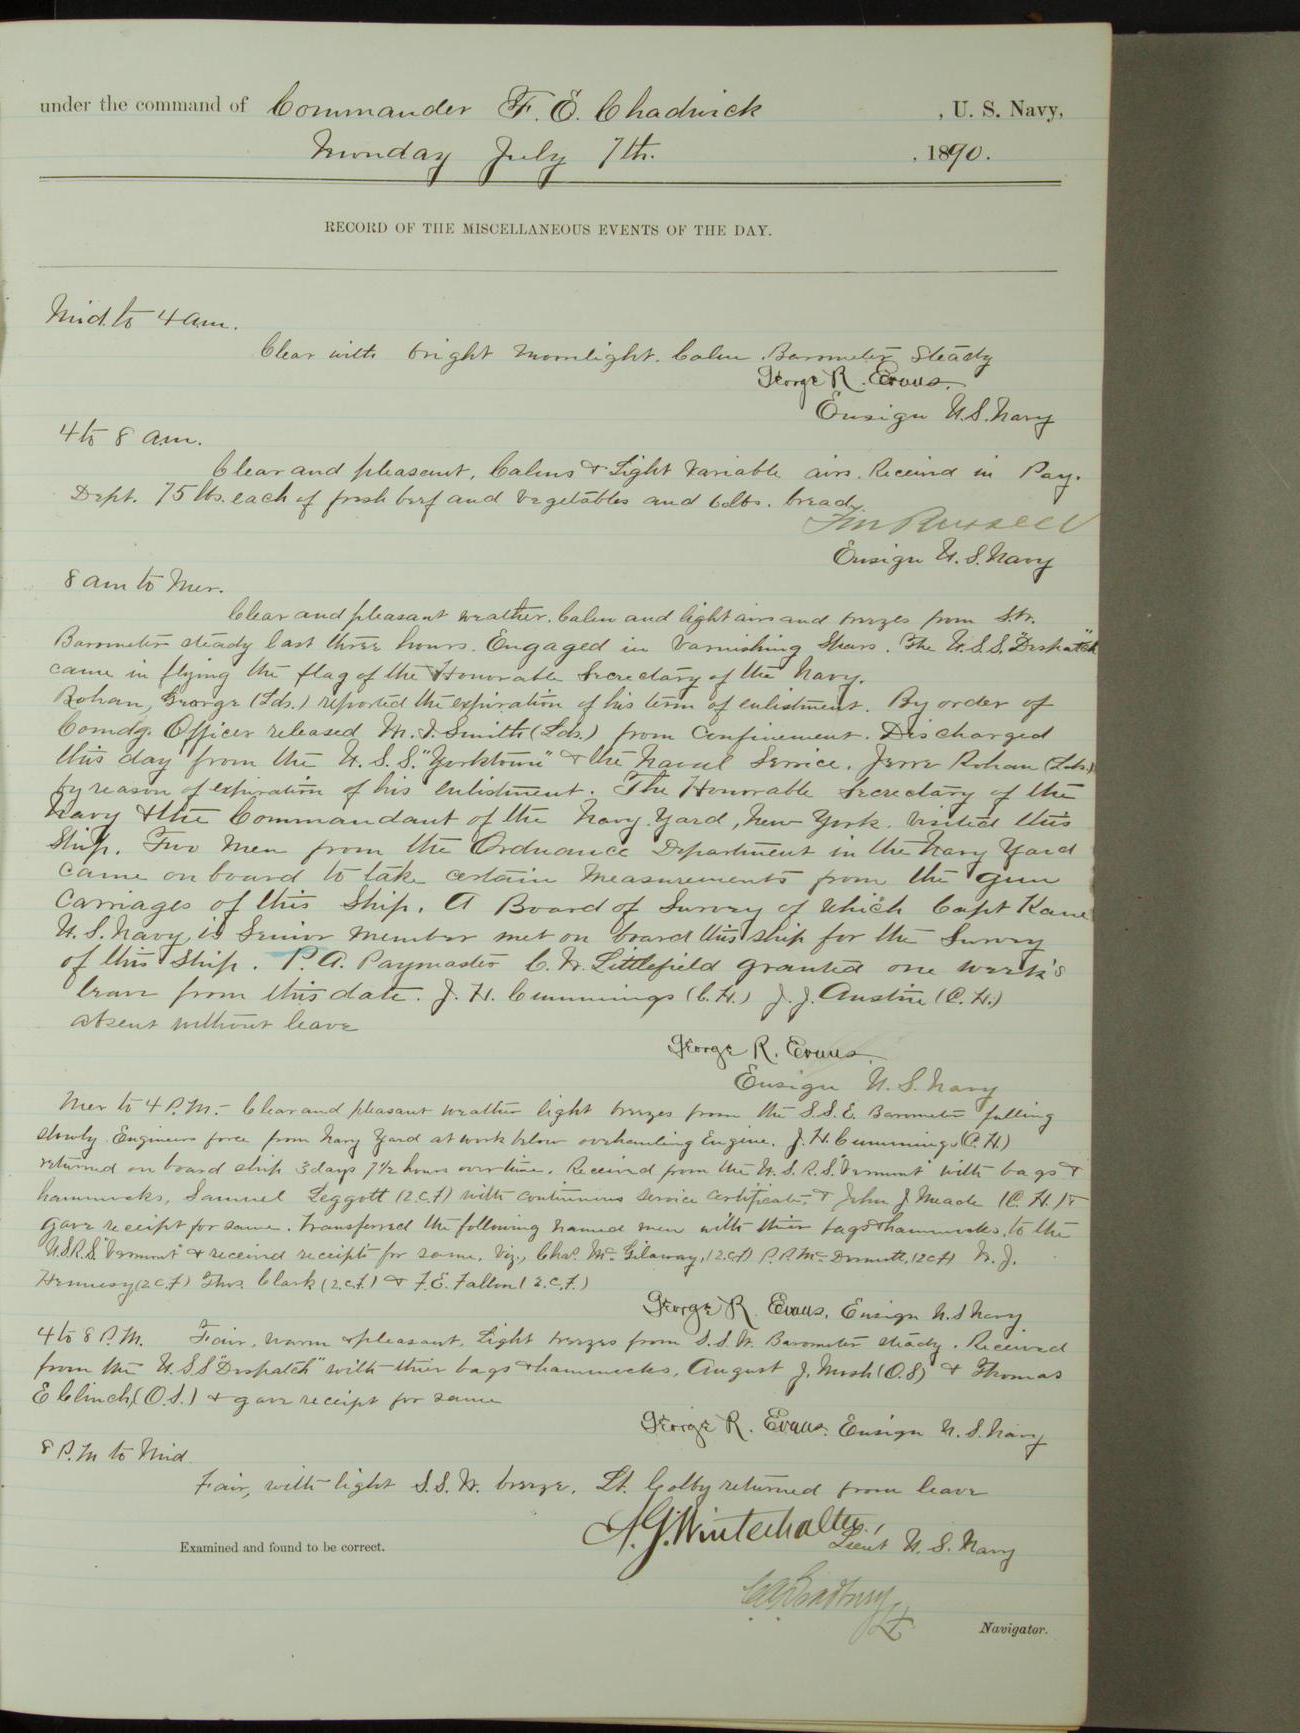 under the command of Commander F. E. Chadwick , U. S. Navy,
Monday July 7th. , 1890.
RECORD OF THE MISCELLANEOUS EVENTS OF THE DAY.
Mid. to 4 a.m.
Clear with bright moonlight. Calm. Barometer steady
George R. Evans.
Ensign U.S. Navy
4 to 8 a.m.
Clear and pleasant, Calms & Light variable airs. Received in Pay.
Dept. 75 lbs. each of fresh beef and vegetables and lbs. bread.
Russell
Ensign U.S. Navy
8 am to Mer.
Clear and pleasant weather. Calm and light airs and breezes from
Barometer steady last three hours. Engaged in varnishing spars. The U.S.S. "Despatch"
came in flying the flag of the Honorable Secretary of the Navy.
Rohan, George (Lds.) reported the expiration of his term of enlistment. By order of
Comdg. Officer released M. J. Smith (Lds.) from confinement. Discharged
this day from the U.S.S. "Yorktown" & the Naval Service, Rohan (Lds.)
by reason of expiration of his enlistment. The Honorable Secretary of the
Navy & the Commandant of the Navy Yard, New York. visited this
Ship. Two men from the Ordnance Department in the Navy Yard
came on board to take certain measurements from the gun
carriages of this Ship. A Board of Survey of which Capt Kane
U.S. Navy is Senior member met on board this ship for the Survey
of this Ship. P.A. Paymaster C. W. Littlefield granted one week's
leave from this date. J. H. Cummings (C.H.) J. J. Austin (C.H.)
absent without leave
George R. Evans.
Ensign U.S. Navy
Mer to 4 P.M. - Clear and pleasant weather light breezes from the S.S.E. Barometer falling
slowly. Engineers force from Navy Yard at work below overhauling Engine. J. H. Cummings (C.H.)
returned on board ship 3 days 7½ hours overtime. Received from the U.S.R.S. "Vermont" with bags &
hammocks, Samuel Leggott (2.C.F) with continuous service certificate, & John J Meade (C.H.) &
gave receipt for same. Transferred the following named men with their bags & hammocks, to the
U.S.R.S. "Vermont" & received receipt for same. Viz., Chas. Mc Gilaway, (2.C.F) P. P. Mc Dermott, (2CF) W. J.
Hennesy (2.C.F) Thos. Clark (2.C.F.) & F. E. Fallon (2.C.F.)
George R. Evans, Ensign U.S Navy
4 to 8 P.M. Fair, warm & pleasant. Light breezes from S.S.W. Barometer steady. Received
from the U.S.S "Despatch" with their bags & hammocks, August J. (O.S) & Thomas
E Clinch, (O.S.) & gave receipt for same
George R. Evans. Ensign U.S. Navy
8 P.M to Mid
Fair, with light S.S.W. breeze. Lt. Colby returned from leave
A. G. Winterhalter,
Lieut U.S. Navy
Examined and found to be correct.
Bradbury Lt
Navigator.